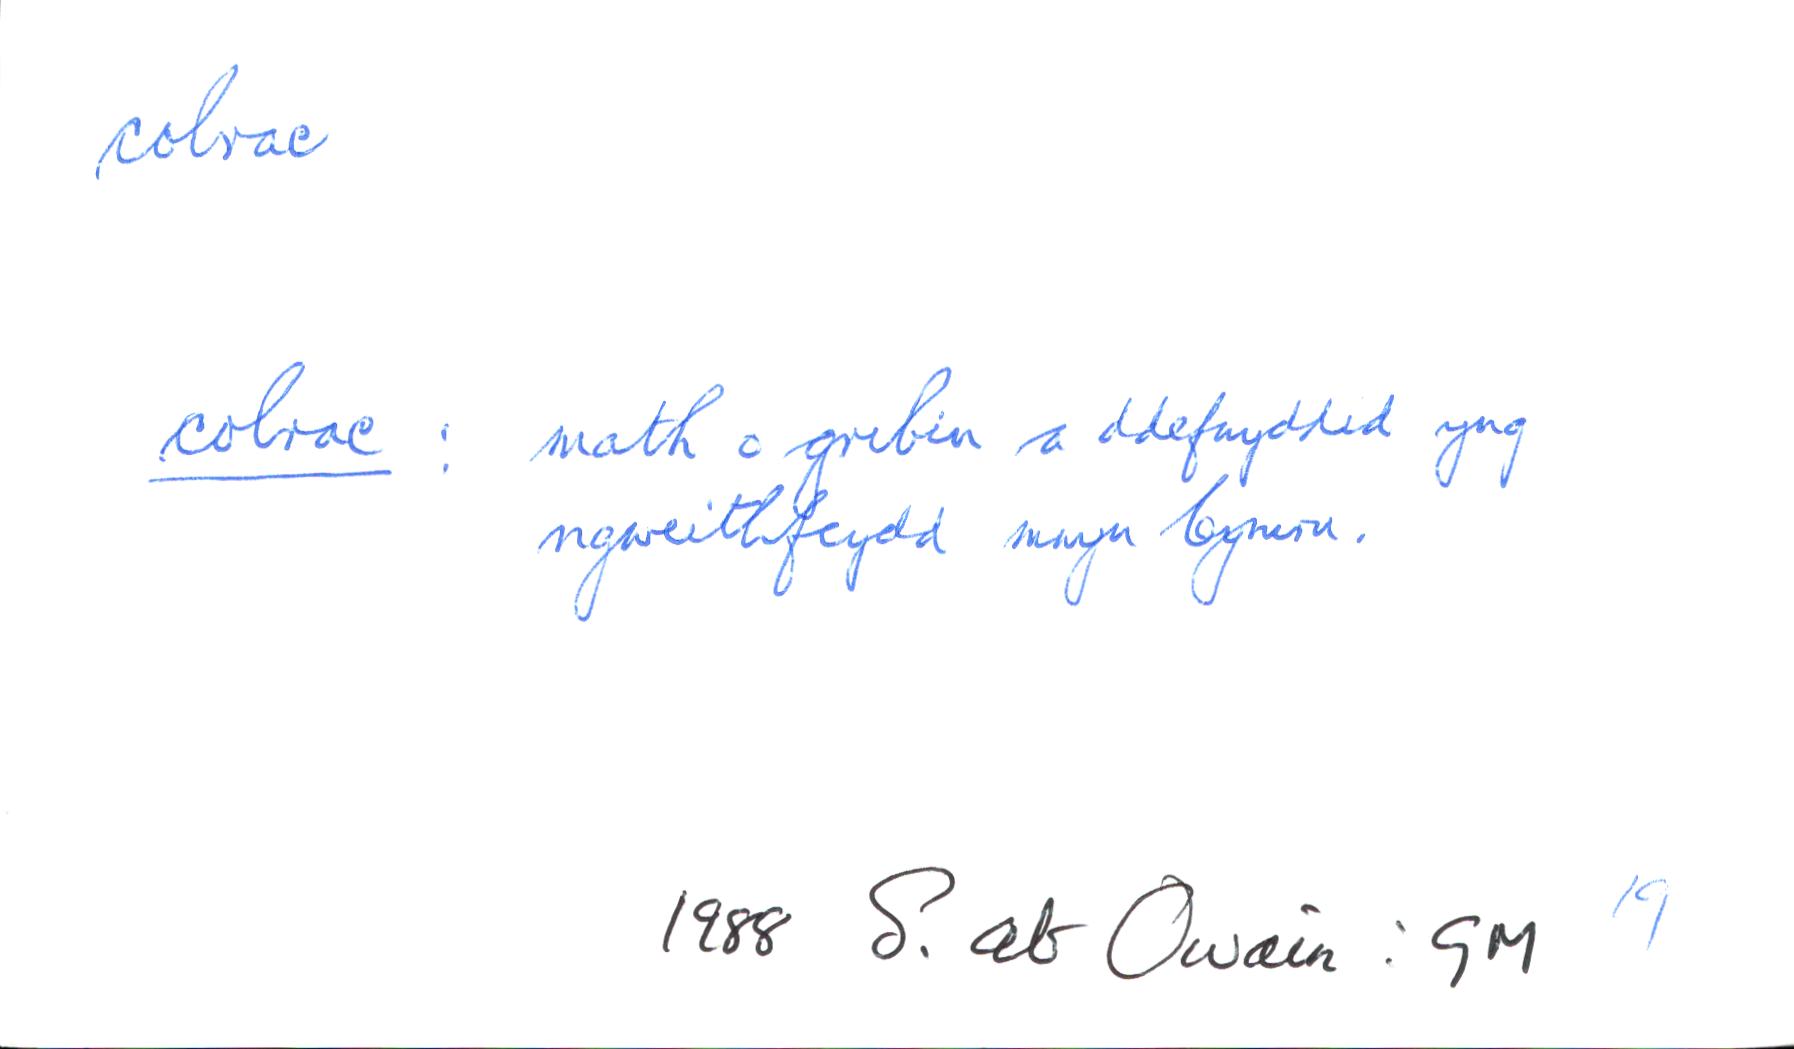 colrac
colrac : math o gribin a ddefnyddid yng
ngweithfeydd mwyn Cymru.
1988 S. ab Owain : GM 19